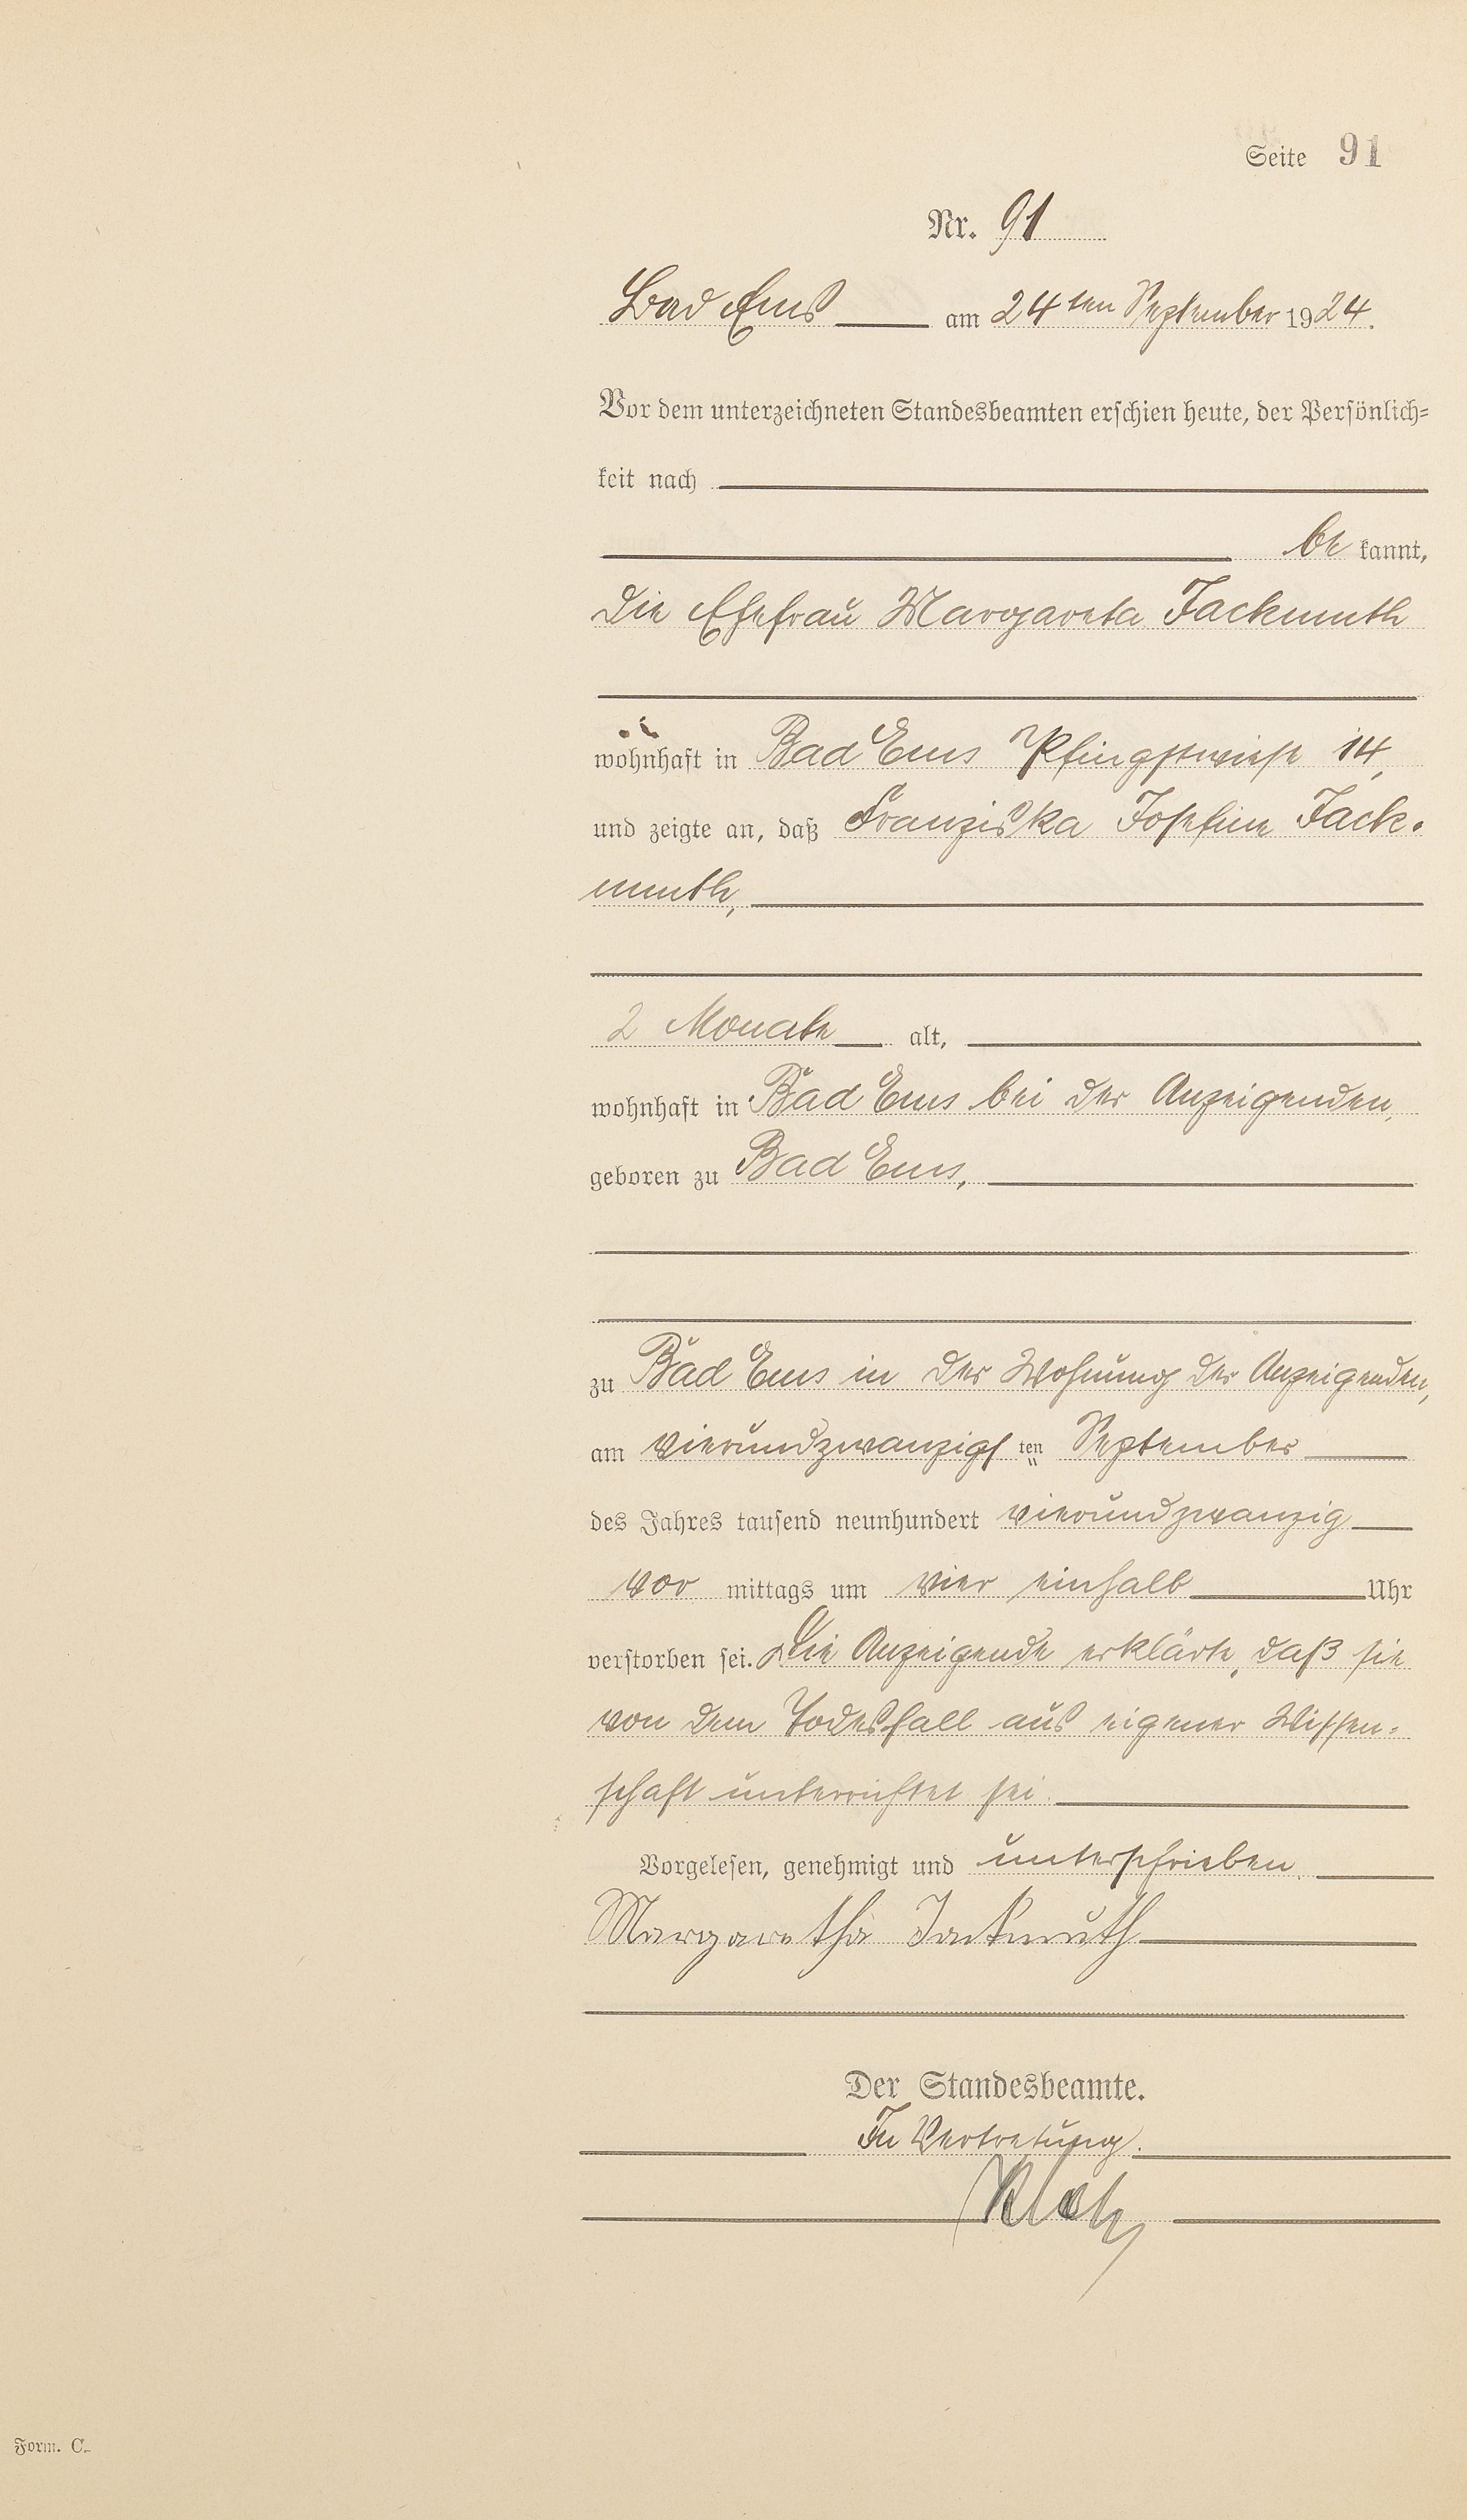 Seite 91
Nr. 91
Bad Ems am 24ten September 1924.
Vor dem unterzeichneten Standesbeamten erschien heute, der Persönlich-
keit nach
be kannt,
die Ehefrau Margareta Jackmuth
wohnhaft in Bad Ems Pfingstwiese 14,
und zeigte an, daß Franziska Josefine Jack-
muth,
2 Monate alt,
wohnhaft in Bad Ems bei der Anzeigenden,
geboren zu Bad Ems,
zu Bad Ems in der Wohnung der Anzeigenden,
am vierundzwanzigsten September
des Jahres tausend neunhundert vierundzwanzig
vor mittags um vier einhalb Uhr
verstorben sei. Die Anzeigende erklärte, daß sie
von dem Todesfall aus eigener Wissen-
schaft unterrichtet sei.
Vorgelesen, genehmigt und unterschrieben.
Margaretha Jackmuth
Der Standesbeamte.
In Vertretung.
Form. C.